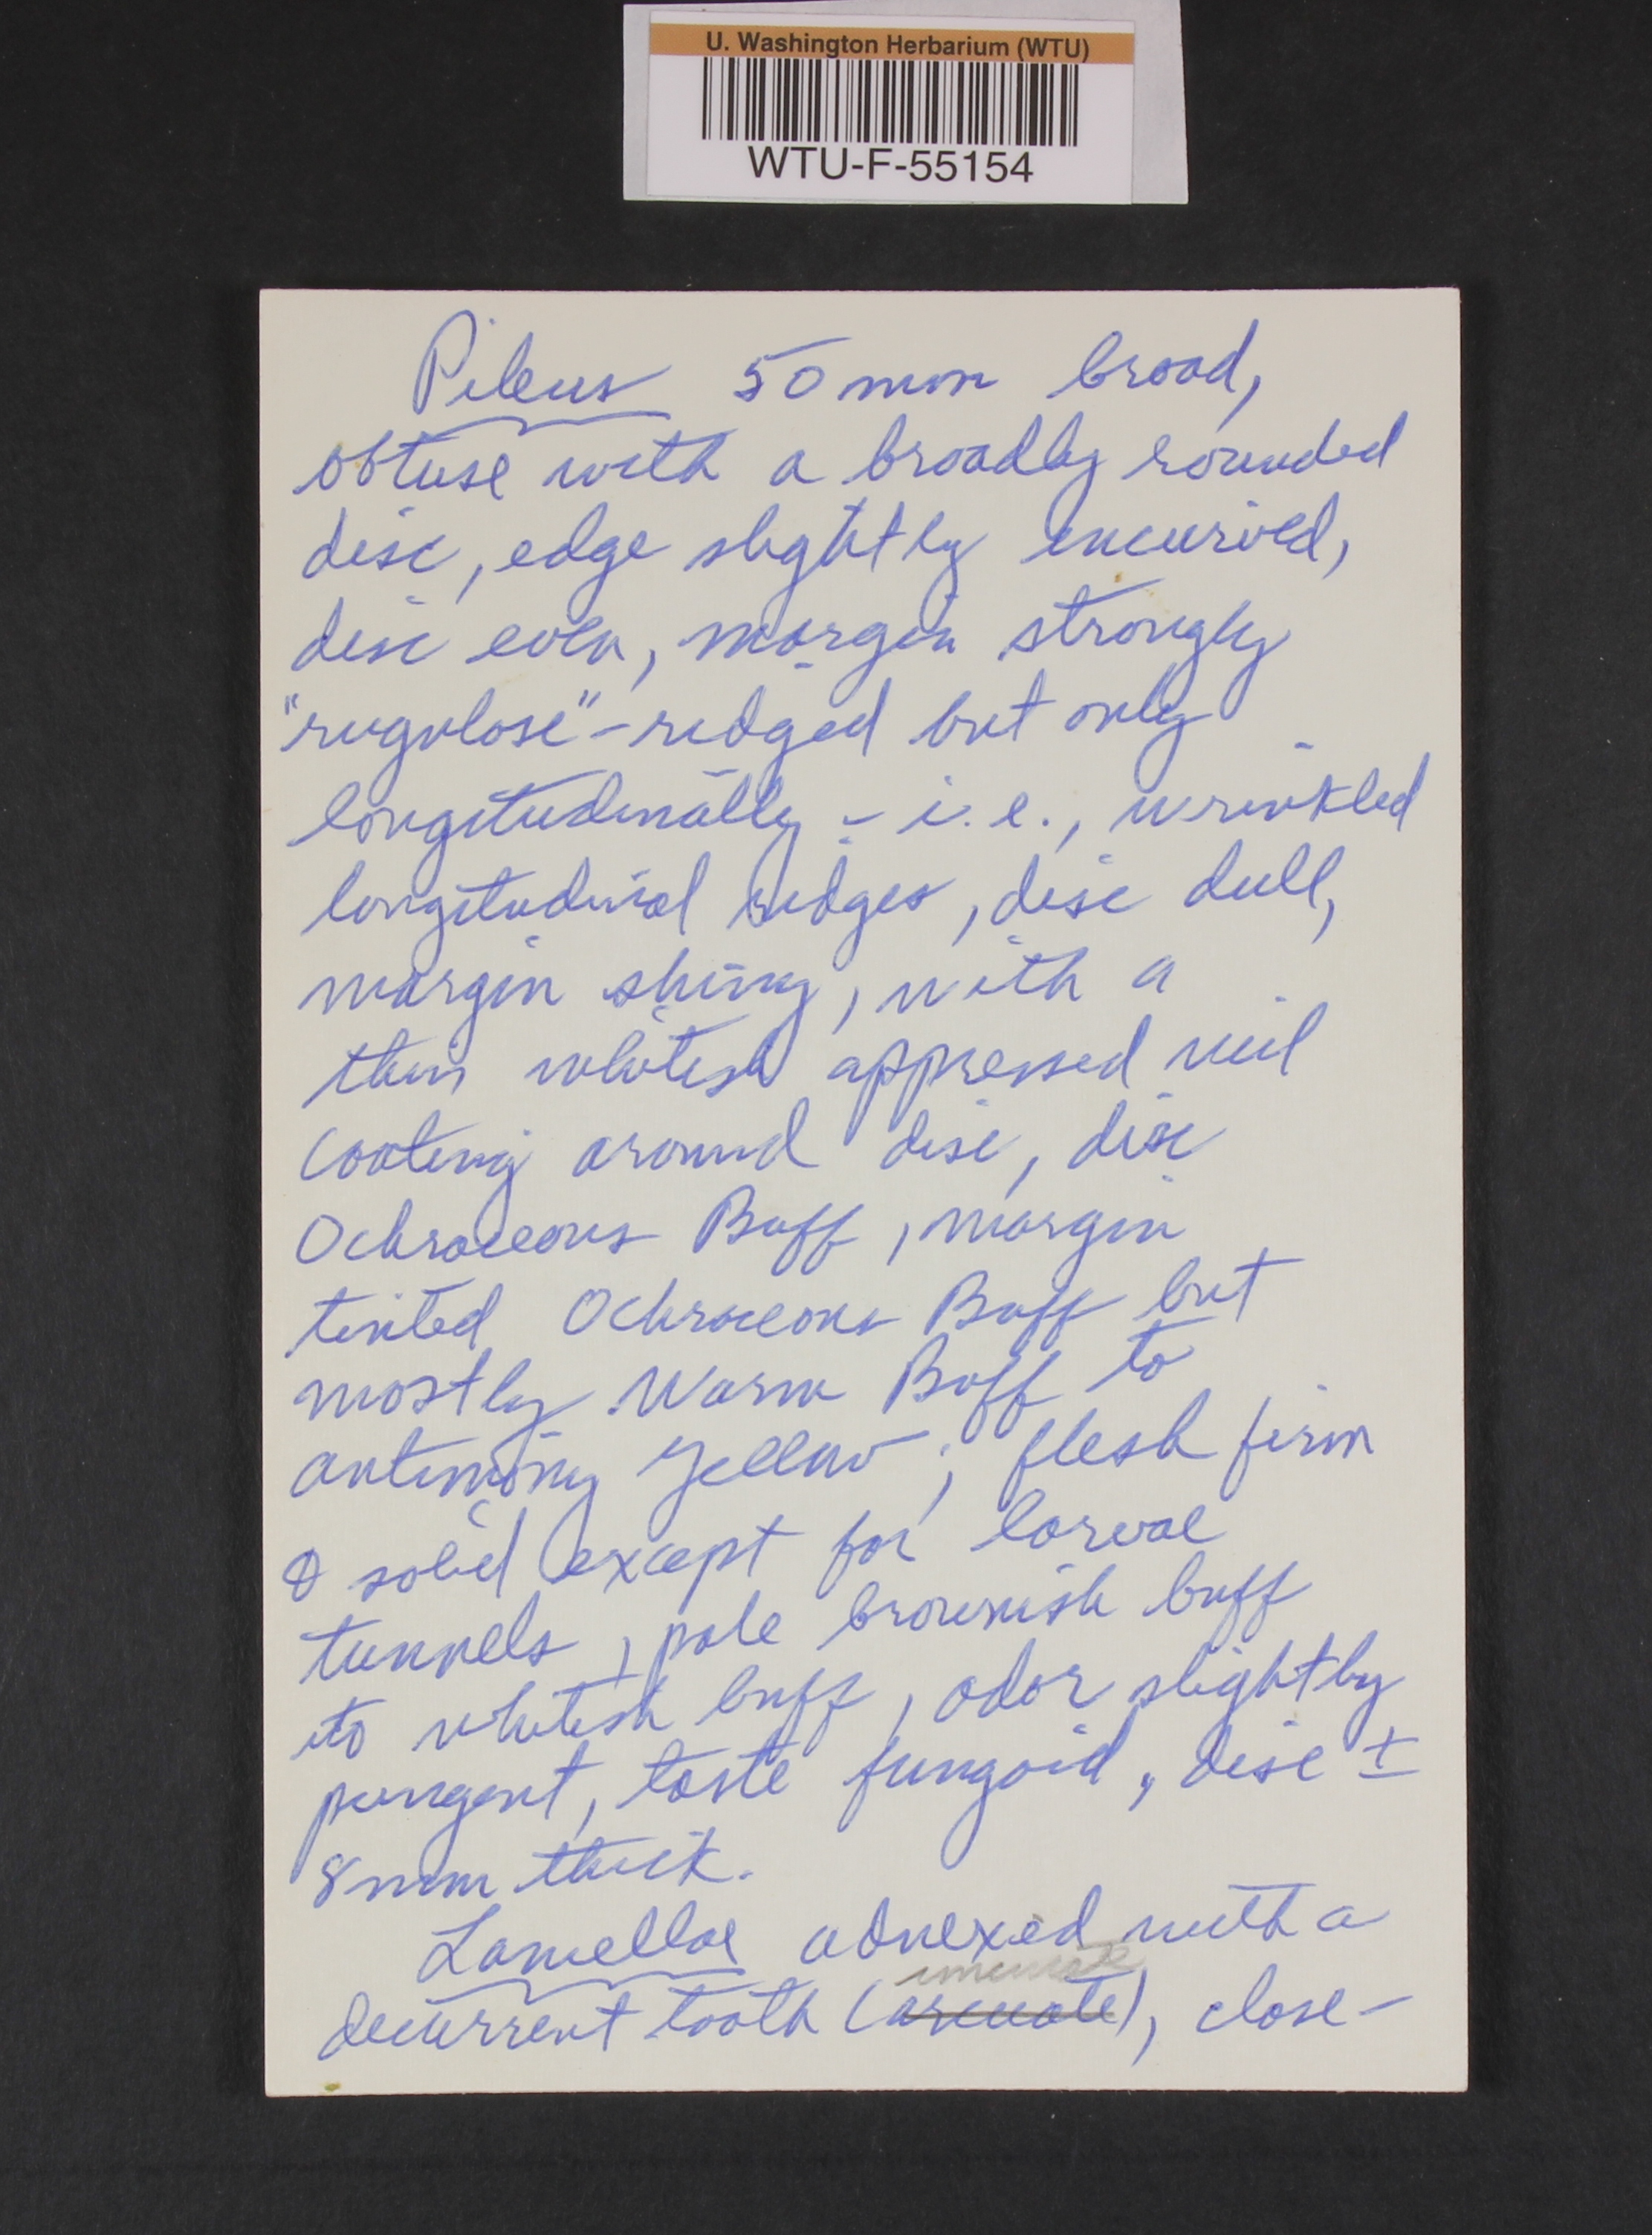 U. Washington Herbarium (WTU)
WTU-F-55154
Pileus 50 mm broad,
obtuse with a broadly rounded
disc, edge slightly incurved,
disc even, margin strongly
"rugulose"-ridged but only
longitudinally - i.e., wrinkled
longitudinal ridges, disc dull,
margin shiny, with a
thin whitish appressed veil
coating around disc, disc
Ochraceous Buff, margin
tinted Ochraceous Buff but
mostly Warm Buff to
antimony Yellow; flesh firm
& solid except for larval
tunnels, pale brownish buff
to whitish buff, odor slightly
pungent, taste fungoid, disc ±
8 mm thick.
Lamellae adnexed with a
decurrent tooth (arcuate), close-